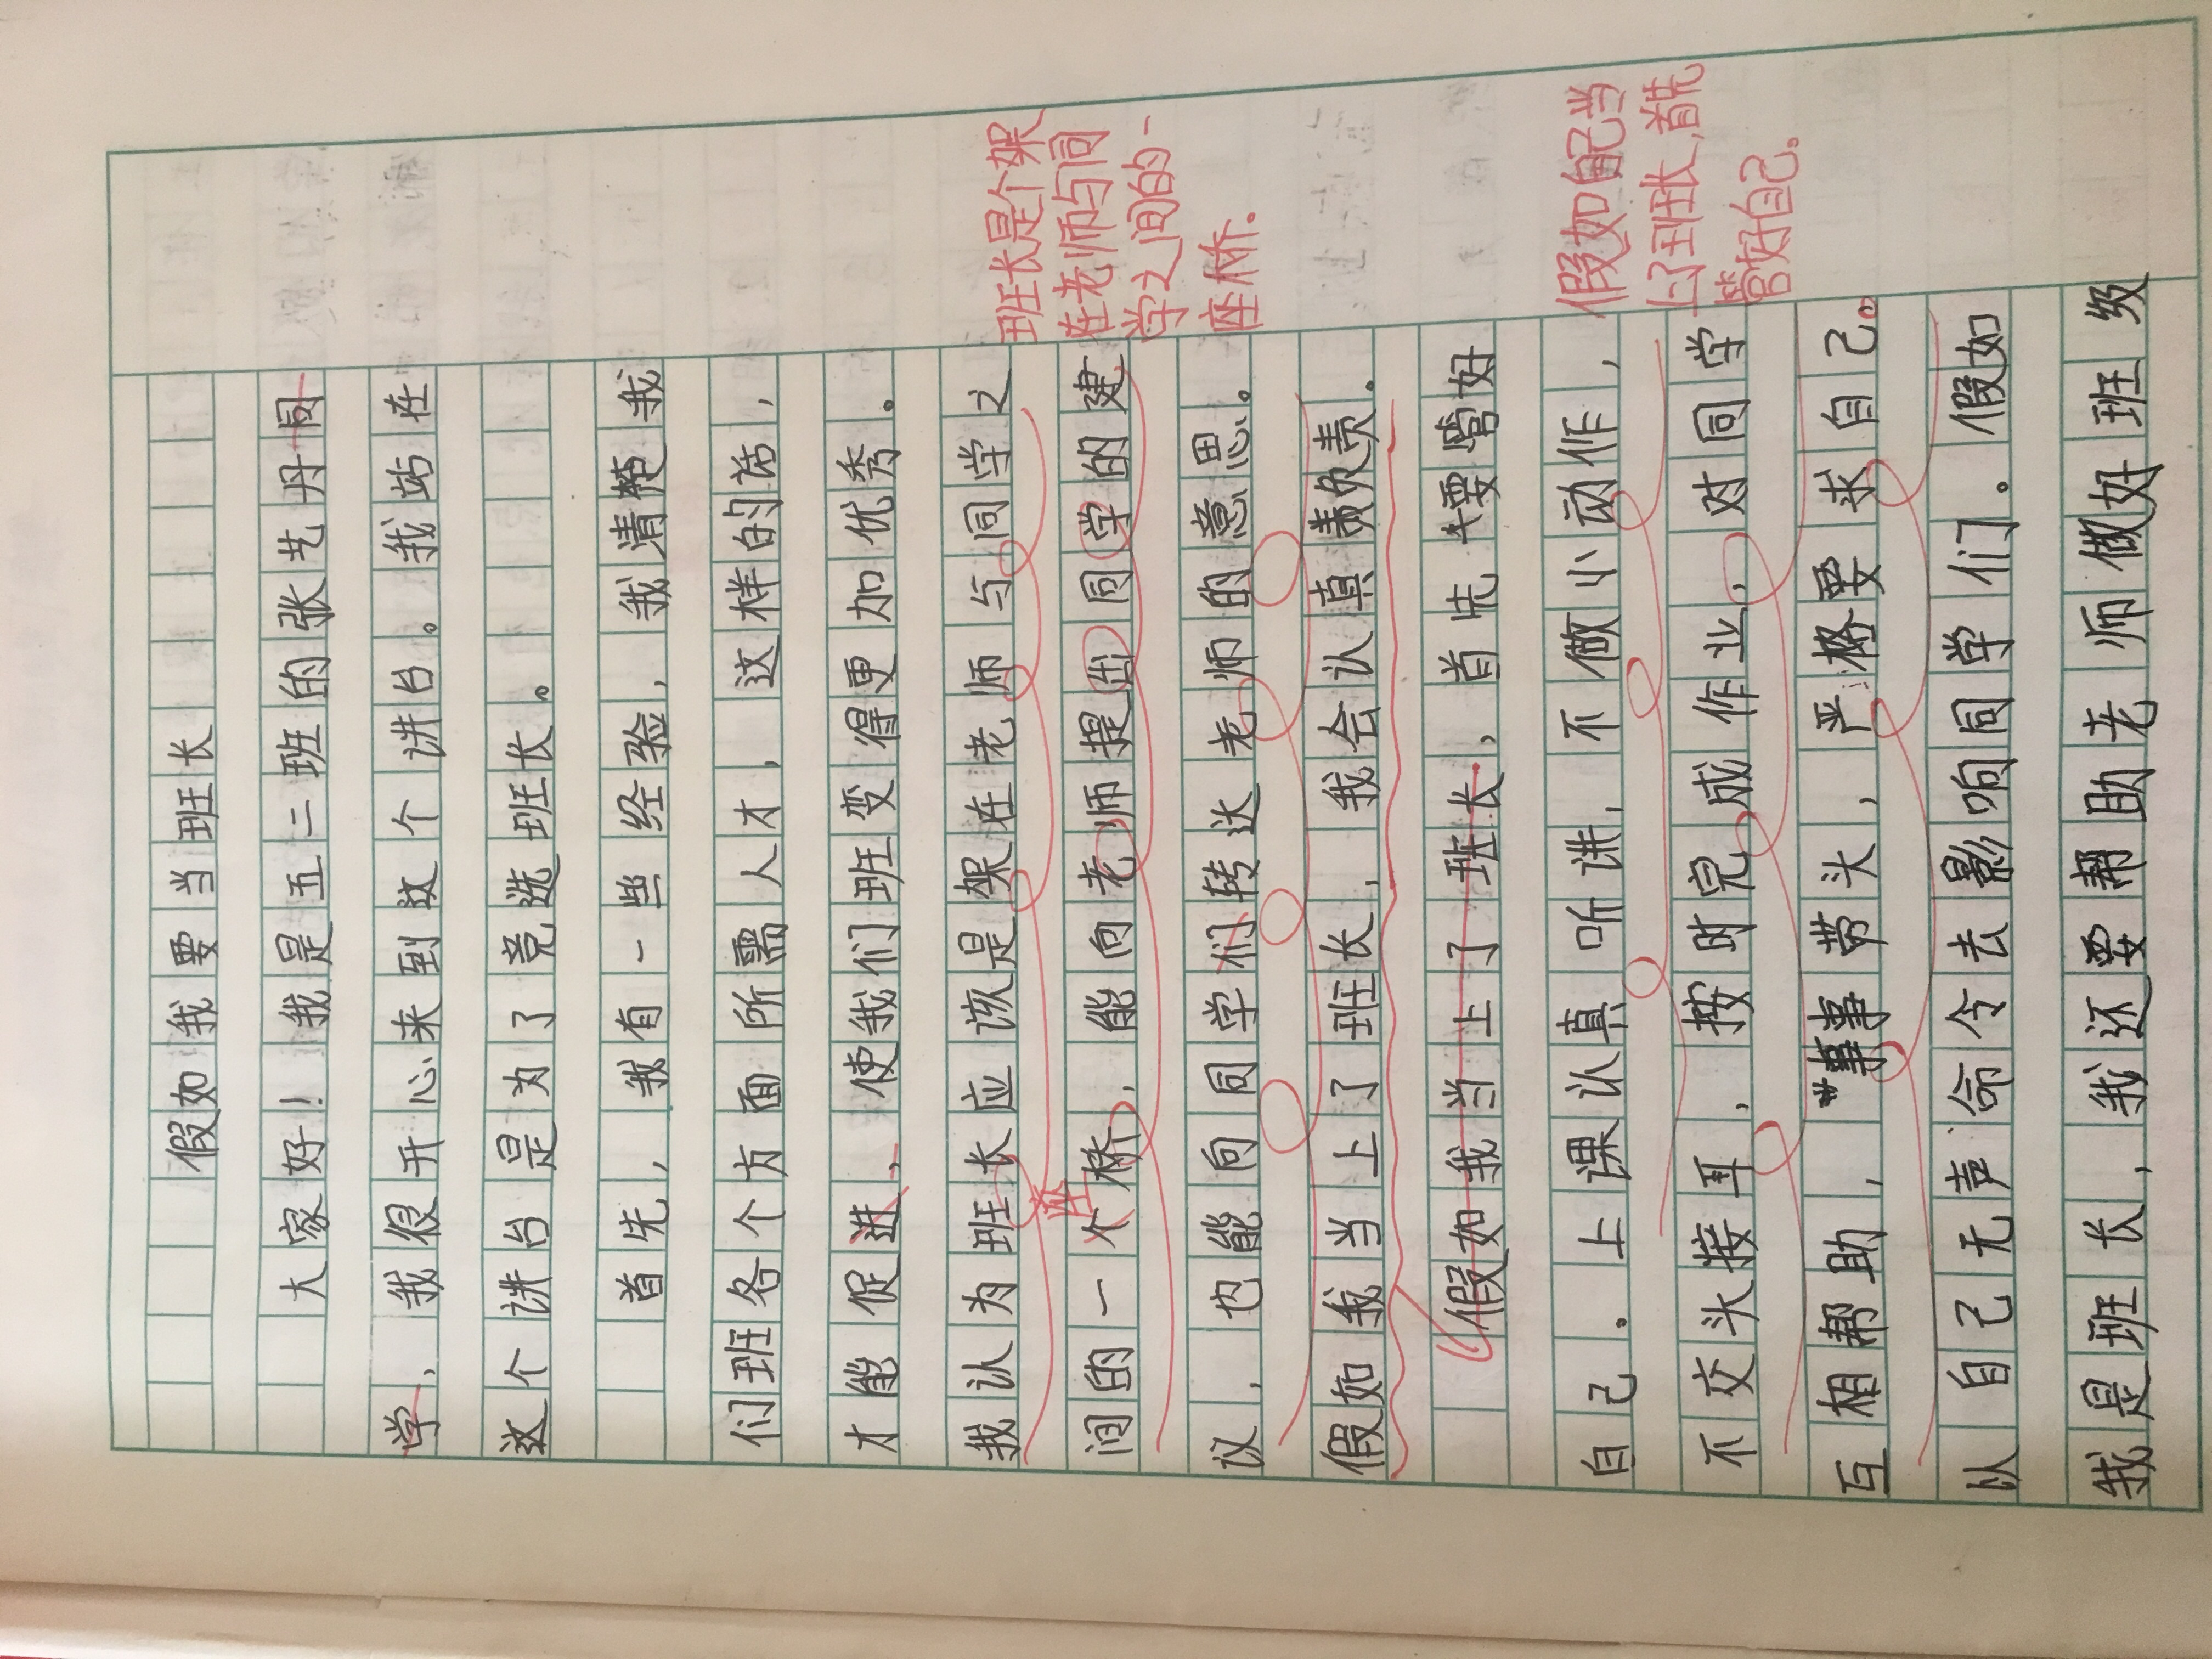 假如我要当班长
大家好！我是五二班的张艺丹同
学，我很开心来到这个讲台。我站在
这个讲台是为了竞选班长。
首先，我有一些经验，我清楚我
们班各个方面所需人才，这样的话，
才能促进，使我们班变得更加优秀。
我认为班长应该是架在老师与同学之
间的一个桥，能向老师提出同学的建
座
议，也能向同学们转达老师的意思。
假如我当上了班长，我会认真负责.
假如我当上了班长，首先要管好
自己.上课认真听讲，不做小动作，
不交头接耳，按时完成作业，对同学
互相帮助，事事带头，严格要求自己。
以自己无声命令去影响同学们。假如
我是班长，我还要帮助老师做好班级
班长是个架
在老师与同
学之间的一
座桥.
假如自己当
上了班长,首先
管好自己。